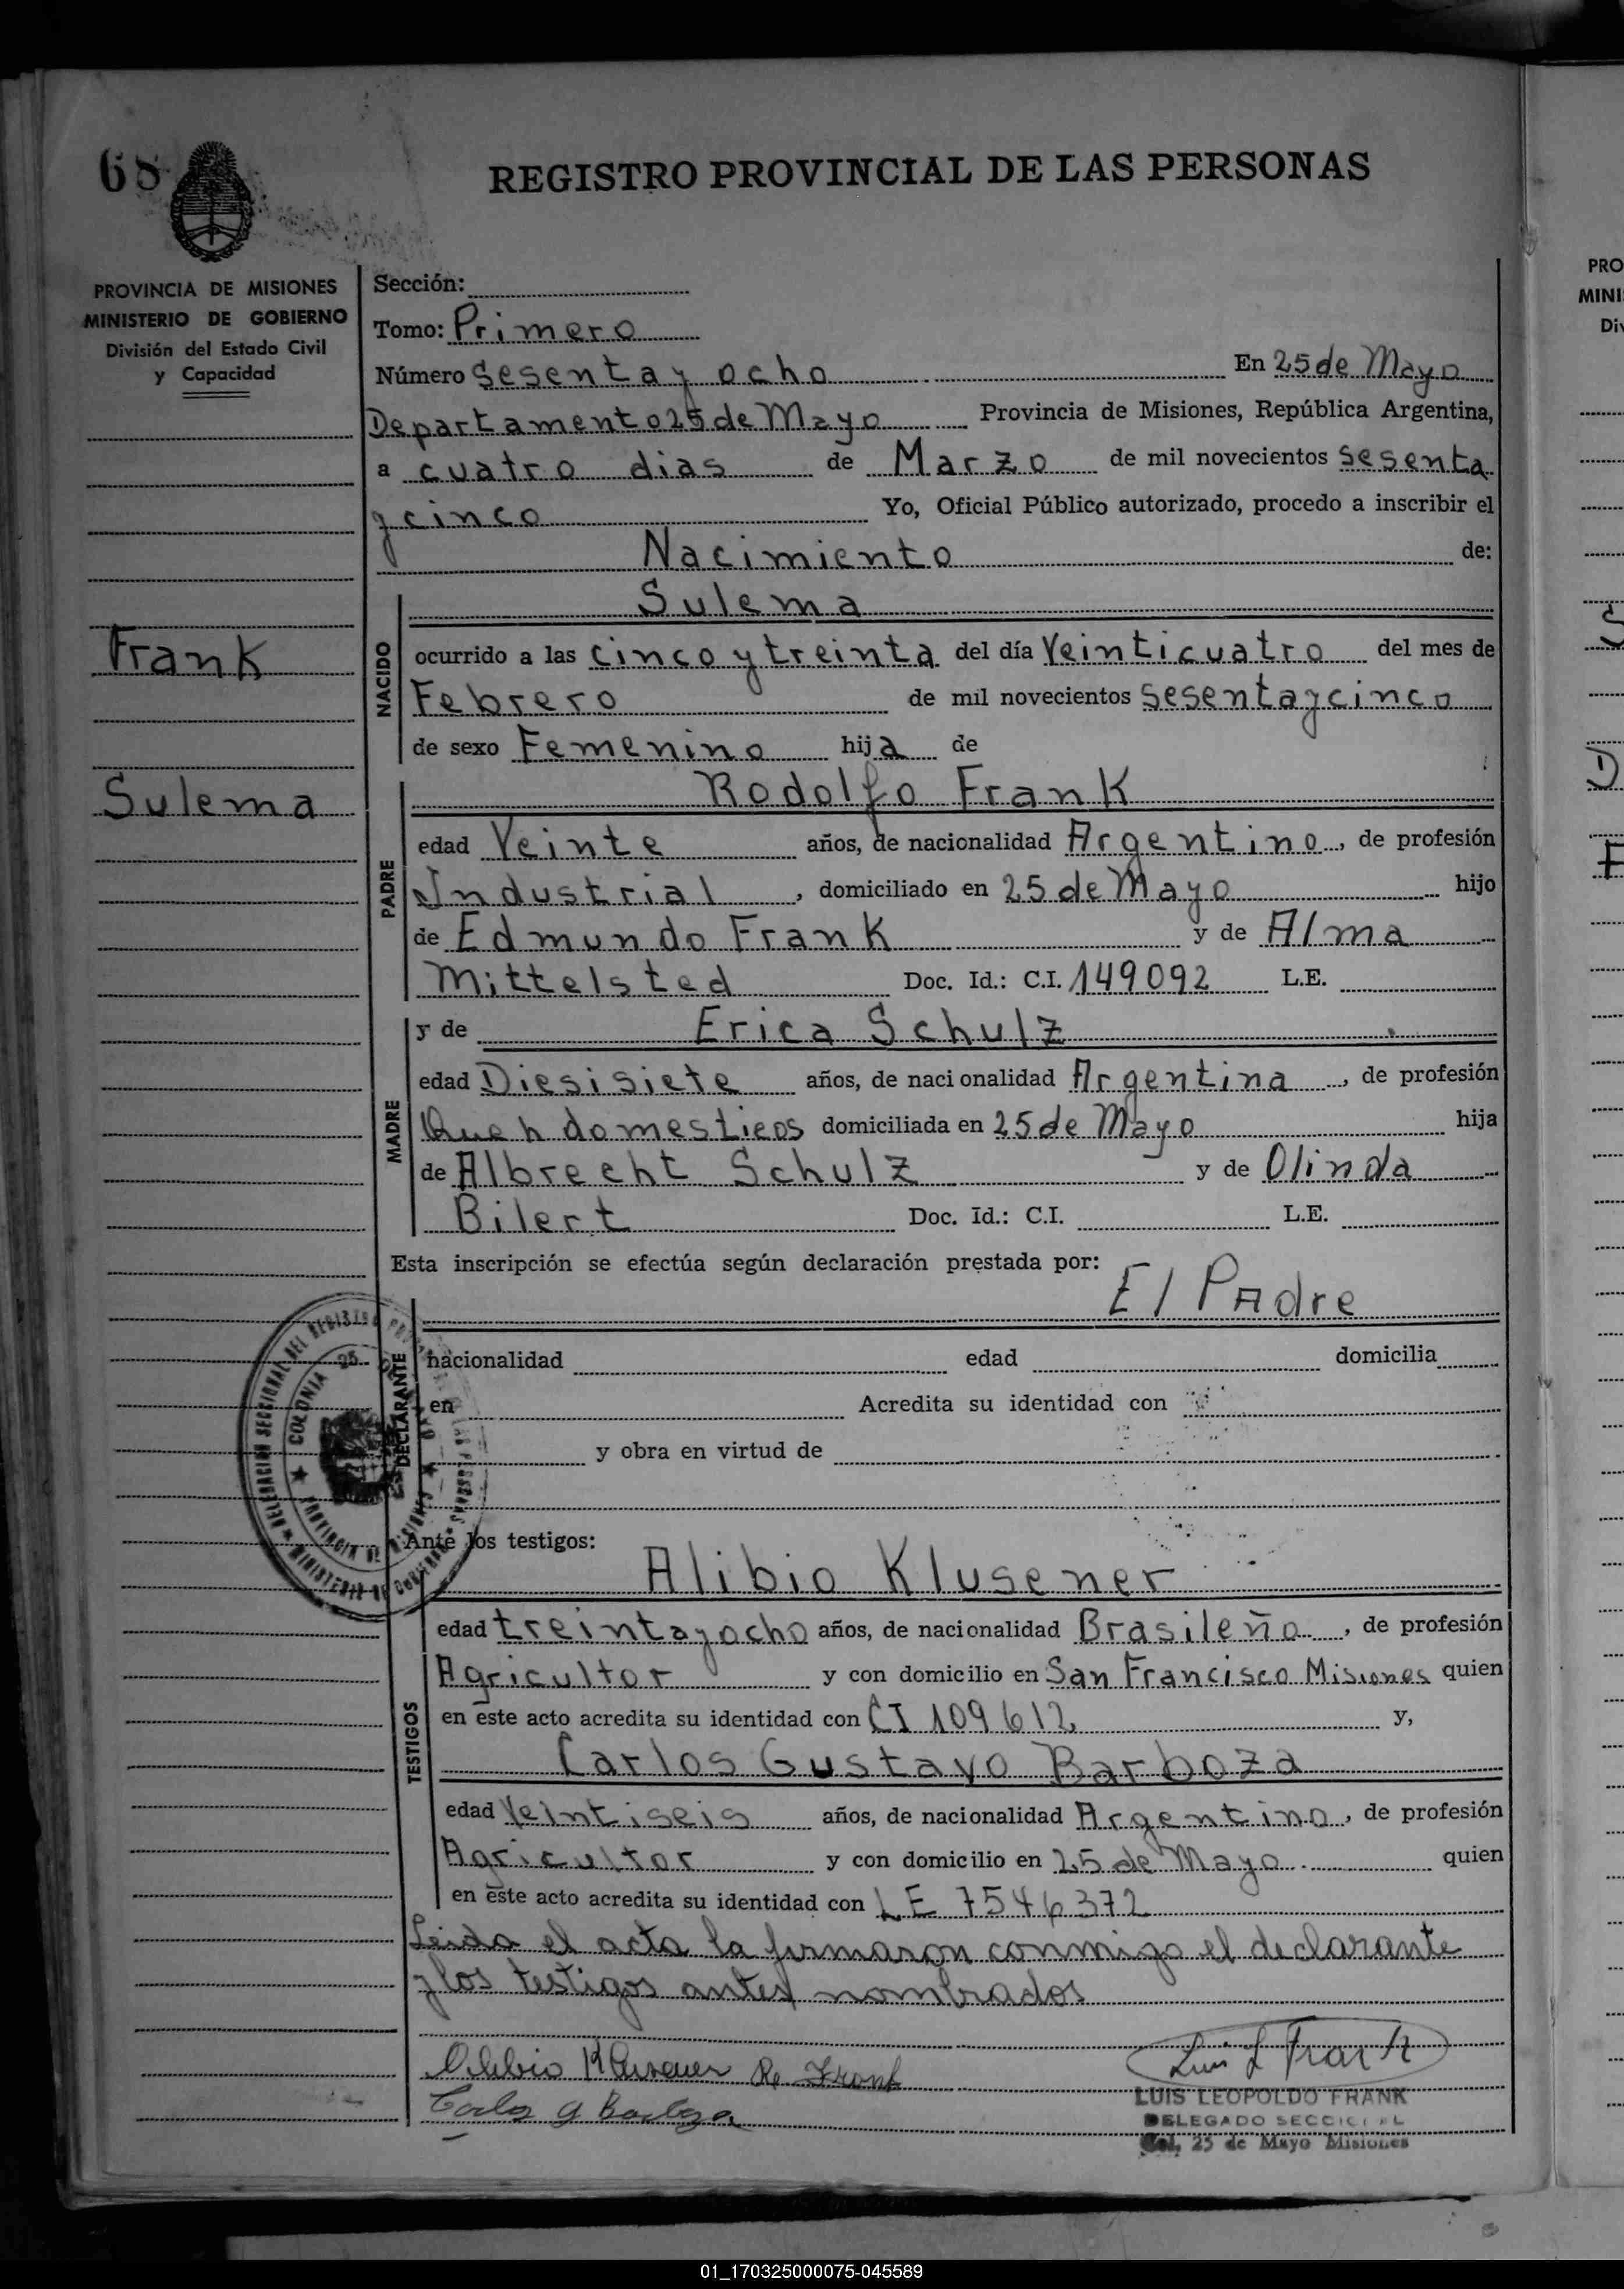 68
REGISTRO PROVINCIAL DE LAS PERSONAS
PROVINCIA DE MISIONES
MINISTERIO DE GOBIERNO
División del Estado Civil
y Capacidad
Frank
Sulema
Sección:
Tomo: Primero
Número Sesenta y ocho En 25 de Mayo
Departamento 25 de Mayo Provincia de Misiones, República Argentina,
a cuatro dias de Marzo de mil novecientos sesenta
y cinco Yo, Oficial Público autorizado, procedo a inscribir el
Nacimiento de:
NACIDO
Sulema
ocurrido a las cinco y treinta del día Veinticuatro del mes de
Febrero de mil novecientos sesenta y cinco
de sexo Femenino hija de
PADRE
Rodolfo Frank
edad Veinte años, de nacionalidad Argentino, de profesión
Industrial, domiciliado en 25 de Mayo hijo
de Edmundo Frank y de Alma
Mittelsted Doc. Id.: C.I. 149092 L.E.
MADRE
y de Erica Schulz
edad Diesisiete años, de nacionalidad Argentina, de profesión
Queh domesticos domiciliada en 25 de Mayo hija
de Albrecht Schulz y de Olinda
Bilert Doc. Id.: C.I. L.E.
Esta inscripción se efectúa según declaración prestada por:
El Padre
DECLARANTE
nacionalidad edad domicilia
en Acredita su identidad con
y obra en virtud de
Ante los testigos:
TESTIGOS
Alibio Klusener
edad treinta y ocho años, de nacionalidad Brasileño, de profesión
Agricultor y con domicilio en San Francisco Misiones quien
en este acto acredita su identidad con CI 109612 y,
Carlos Gustavo Barboza
edad Veintiseis años, de nacionalidad Argentino, de profesión
Agricultor y con domicilio en 25 de Mayo quien
en este acto acredita su identidad con LE 7546372
Leida el acta la firmaron conmigo el declarante
y los testigos antes nombrados
Alibio Klusener R. Frank
Carlos G Barboza
Luis L Frank
LUIS LEOPOLDO FRANK
DELEGADO SECCIONAL
Col. 25 de Mayo Misiones
PRO
MINI
Div
01_170325000075-045589